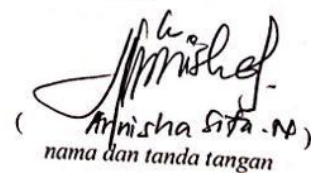 ( Annisha Sita . N )
nama dan tanda tangan